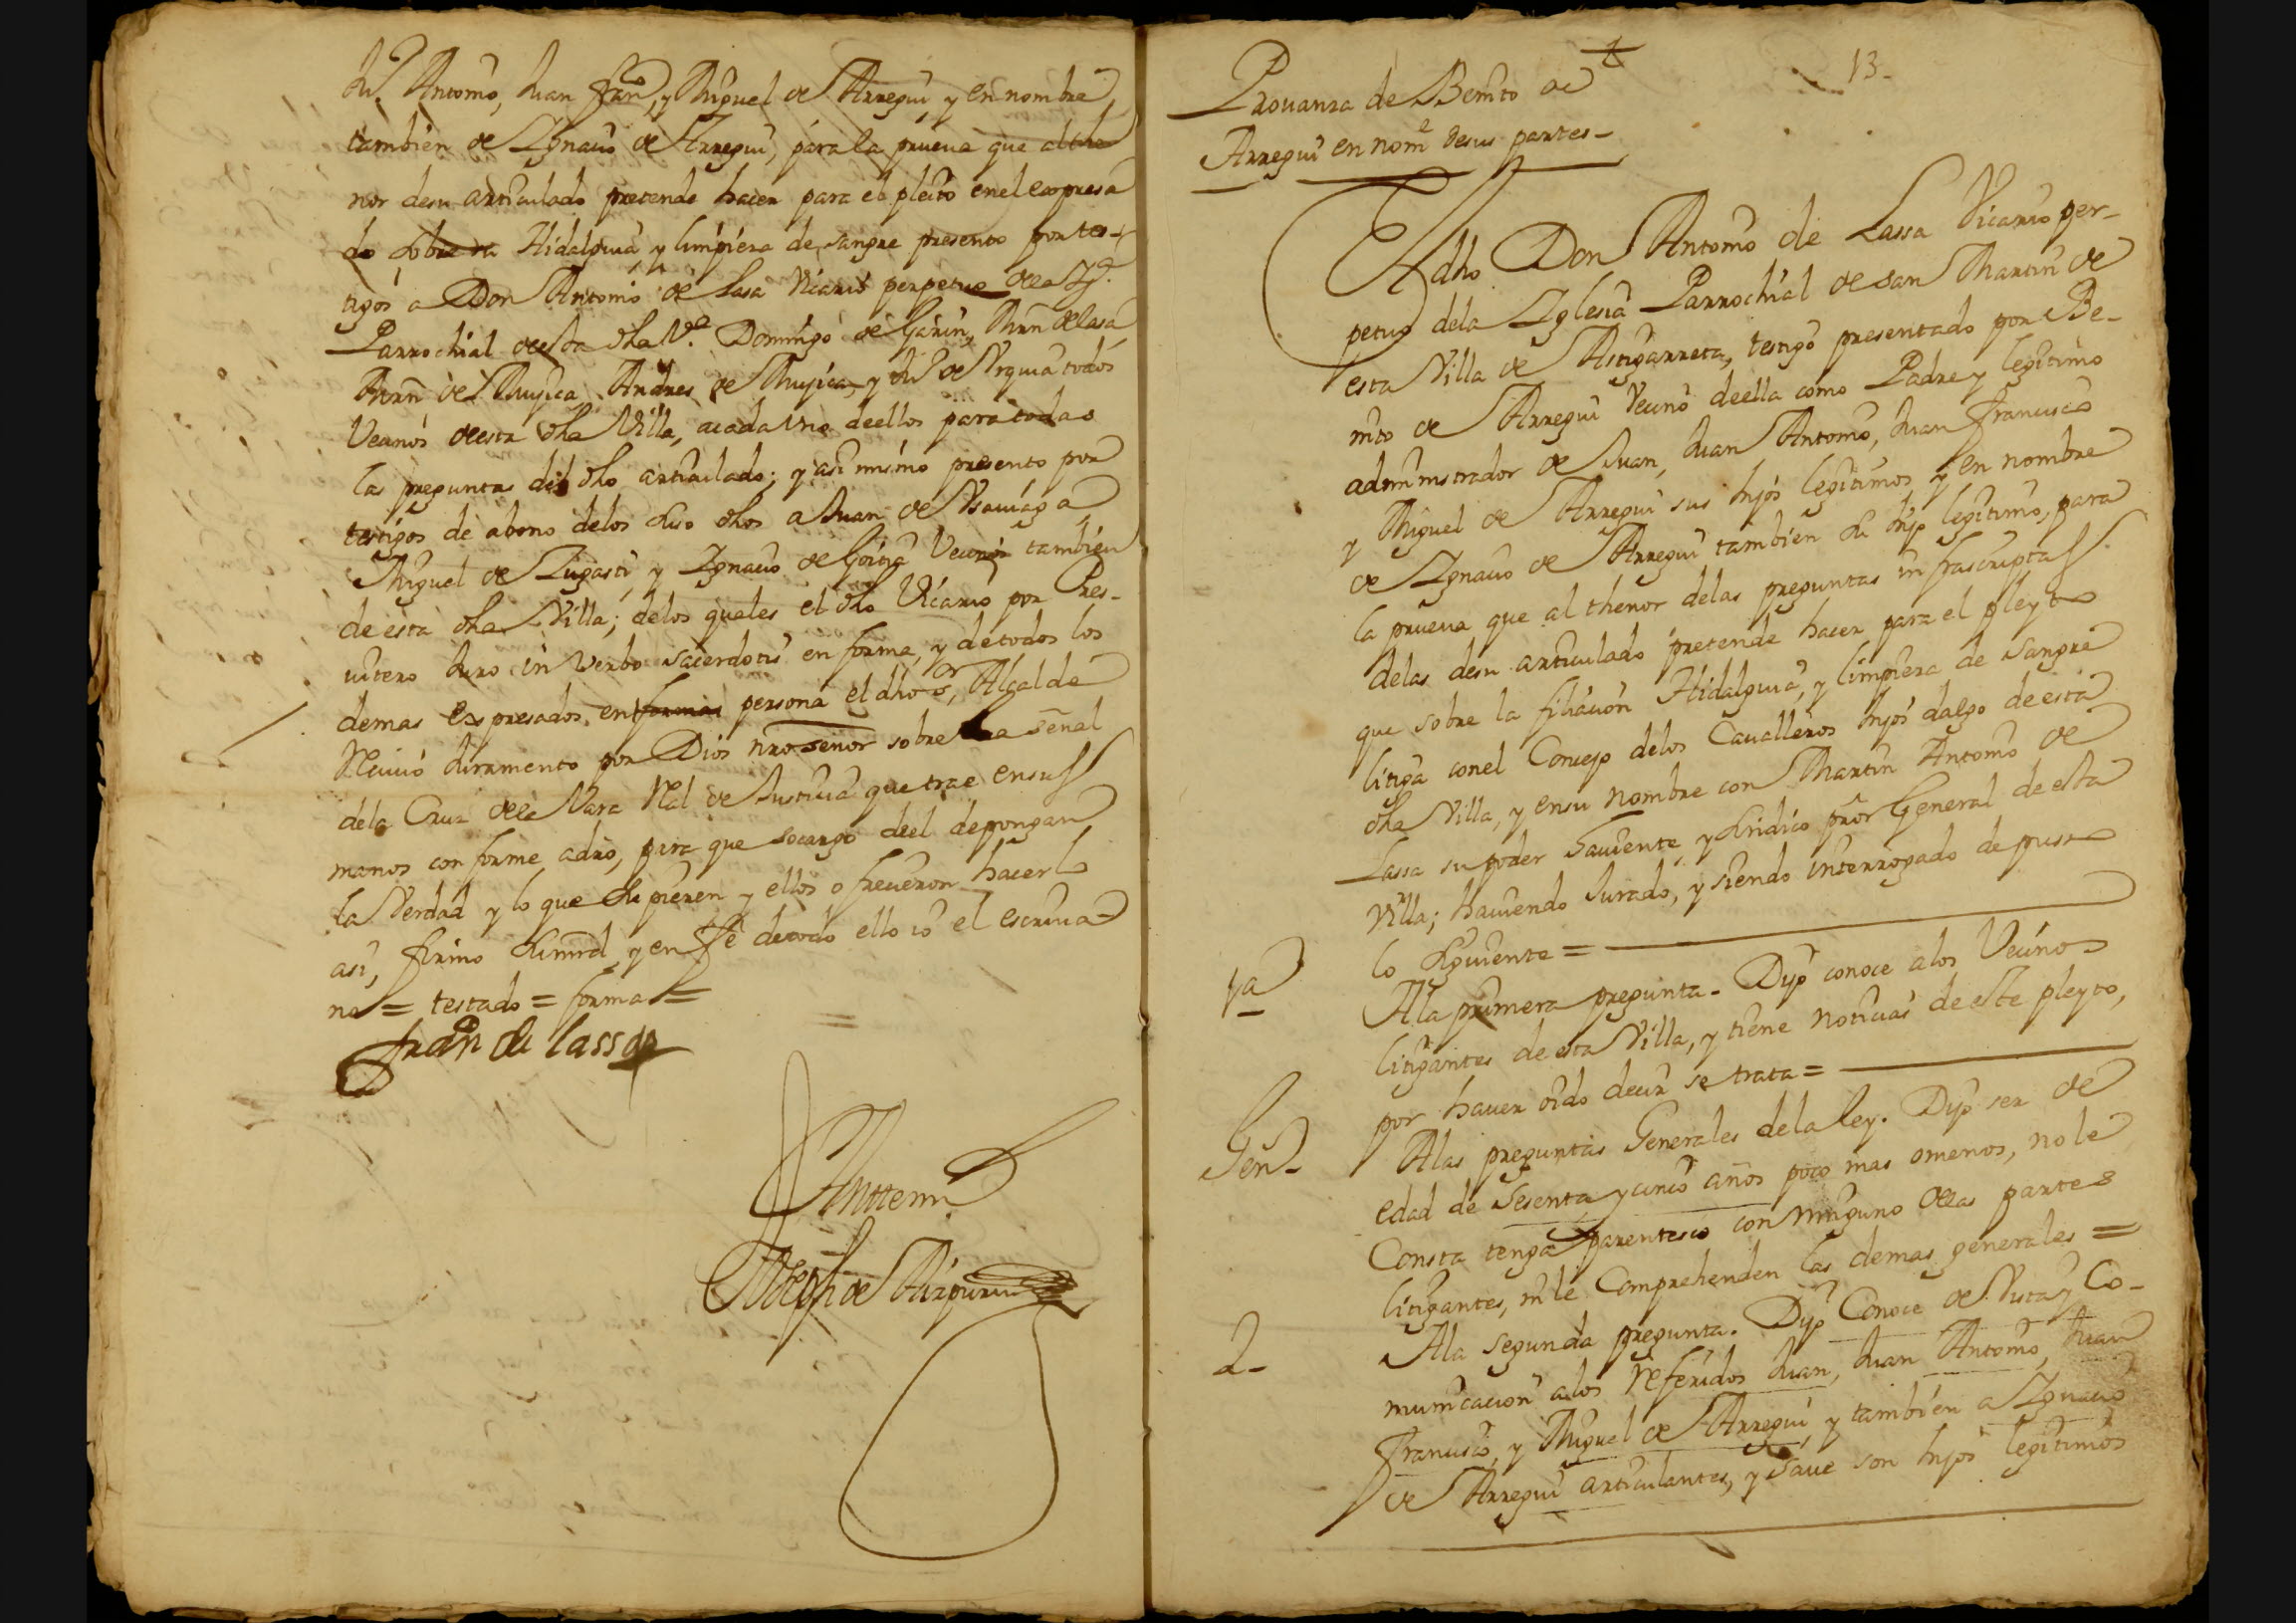 Ju.º Antonio, Juan Fran.co, y Miguel de Arregui, y en nombre
tambien de Ygnacio de Arregui, para la prueua que al the
nor desu articulado pretende hacer para el pleito enel expresa
do sobre su Hidalguia y limpieza de sangre presento por tes-
tigos a Don Antonio de Lasa Vicario perpetuo dela Yg.ª
Parrochial de esta dha V.ª Domingo de Garin, Mrn de Lasa
Mrn de Mujica, Andres de Mujica, y Ju.º de Vrquia todos
Vecinos de esta dha Villa, acada Vno deellos para todas
las preguntas del dho articulado; y asi mismo presento por
testigos de abono delos suso dhos a Juan de
Miguel de Zugasti, y Ygnacio de Goitia Vecinos tambien
de esta dha Villa; delos quales el dho Vicario por Pres-
uitero Juro in Verbo sacerdotis en forma, y de todos los
demas expresados, en formas persona el dho s.or Alcalde
Reciuio Juramento por Dios nro señor sobre la señal
dela Cruz dela Vara Rl de Justicia que trae ensus
manos conforme adro, para que socargo deel depongan
la Verdad y lo que supieren y ellos ofrecieron hacerlo
asi, firmo Sumrd, y en Fe detodo ello io el escriua
no = testado = formas =
Fran de Lassa
Antte mi
Joseph de Aizpuru
13-
Prouanza de Benito de
Arregui en nom.e desus partes-
El dho Don Antonio de Lassa Vicario per-
petuo dela Yglesia Parrochial de san Martin de
esta Villa de Astigarreta, testigo presentado por Be-
nito de Arregui Vecino deella como Padre y legitimo
administrador de Juan, Juan Antonio, Juan Francisco
y Miguel de Arregui sus hijos legitimos y en nombre
de Ygnacio de Arregui tambien su hijo legitimo, para
la prueua que al thenor delas preguntas infrascriptas
delas desu articulado pretende hacer para el pleyto
que sobre la filiacion Hidalguia, y limpieza de sangre
litiga conel Concejo delos Caualleros hijos dalgo de esta
dha Villa, y ensu nombre con Martin Antonio de
Lassa su poder hauiente, y sindico pror General de esta
Villa; hauiendo Jurado, y siendo interrogado depuso
lo siguiente =
1a
Ala primera pregunta. Dijo conoce alos Vecinos
litigantes de esta Villa, y tiene noticias de este pleyto,
por hauer oido decir se trata =
Gen-
Alas preguntas Generales dela ley. Dijo ser de
edad de sesenta y cinco años poco mas omenos, no le
Consta tenga parentesco con ninguno delas partes
litigantes, ni le Comprehenden las demas generales =
2-
Ala segunda pregunta. Dijo Conoce de Vista y Co-
municacion alos referidos Juan, Juan Antonio, Juan
Francisco, y Miguel de Arregui, y tambien a Ygnacio
de Arregui articulantes, y saue son hijos legitimos